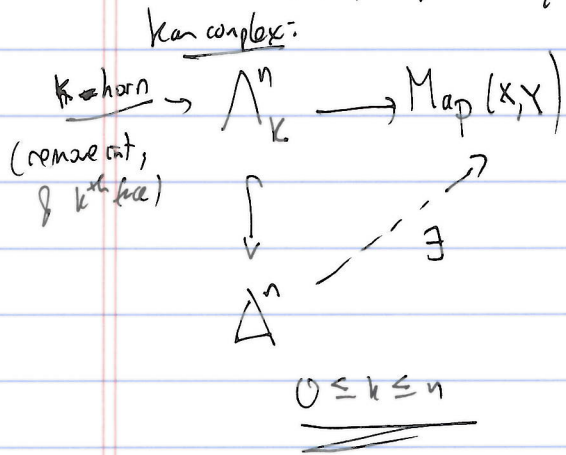 Kan complex:
k-horn → Λ^n_k → Map (X,Y)
(remove int,
& k^th face)
∃
Δ^n
0 ≤ k ≤ n